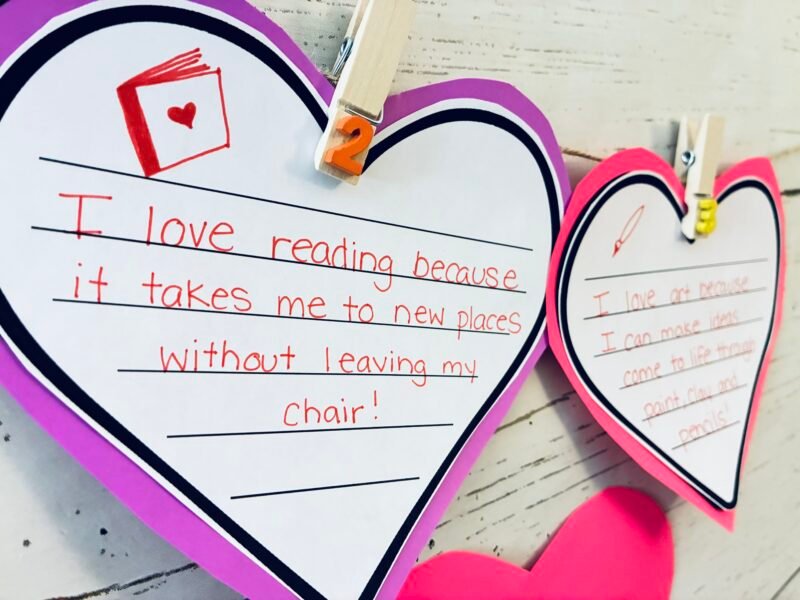 2
I love reading because
it takes me to new places
without leaving my
chair!
I love art because
I can make ideas
come to life through
paint, clay and
pencils!